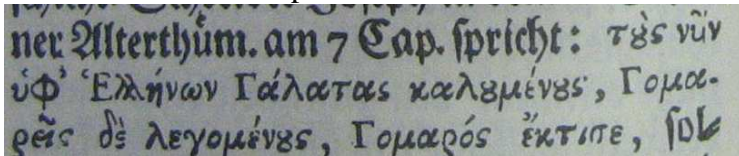 ner Alterthům. am 7 Cap. spricht: τȣ̀ς νῦν
ὑφ' Ἑλλήνων Γάλατας καλȣμένȣς, Γομα-
ρεῖς δὲ λεγομένȣς, Γομαρός ἔκτισε, sol-